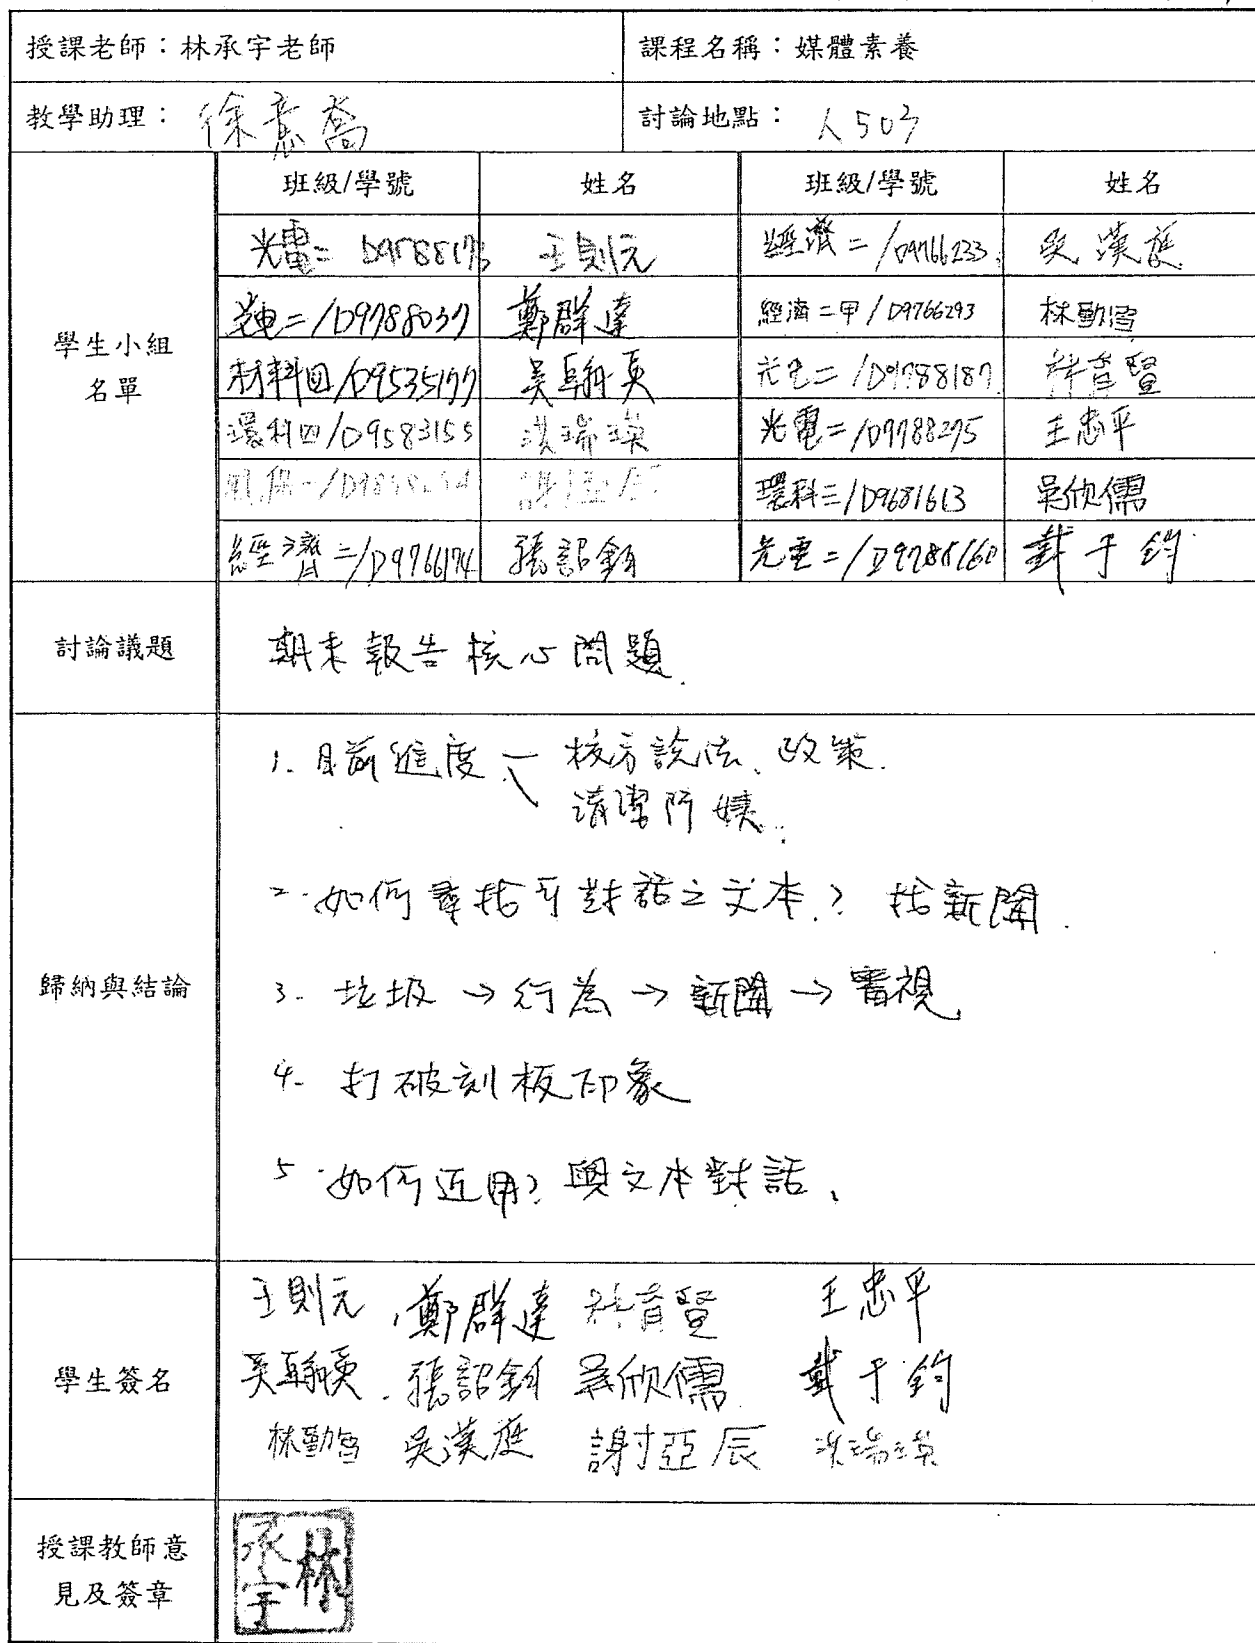 授課老師：林承宇老師 課程名稱：媒體素養
教學助理：徐意喬 討論地點：人503
班級/學號 姓名 班級/學號 姓名
學生小組
名單
光電二 王則元 經濟二/D9766233 吳漢庭
光電二/D9788037 鄭群達 經濟二甲/D9766293 林勤
材料四/D9535177 吳翰 光電二/D9788187 育賢
環科四/D9583155 洪瑞瑛 光電二/D9788275 王忠平
謝亞辰 環科三/D9681613 吳欣儒
經濟二/D9766174 張韶 光電二/D9788160 戴于鈞
討論議題 期末報告核心問題.
歸納與結論
1. 目前進度 校方說法、政策.
清潔阿姨.
2. 如何尋找可對話之文本? 找新聞.
3. 垃圾 → 行為 → 新聞 → 審視
4. 打破刻板印象
5. 如何近用? 與文本對話.
學生簽名
王則元 鄭群達 育賢 王忠平
吳翰 張韶 吳欣儒 戴于鈞
林勤 吳漢庭 謝亞辰 洪瑞瑛
授課教師意
見及簽章
林承宇